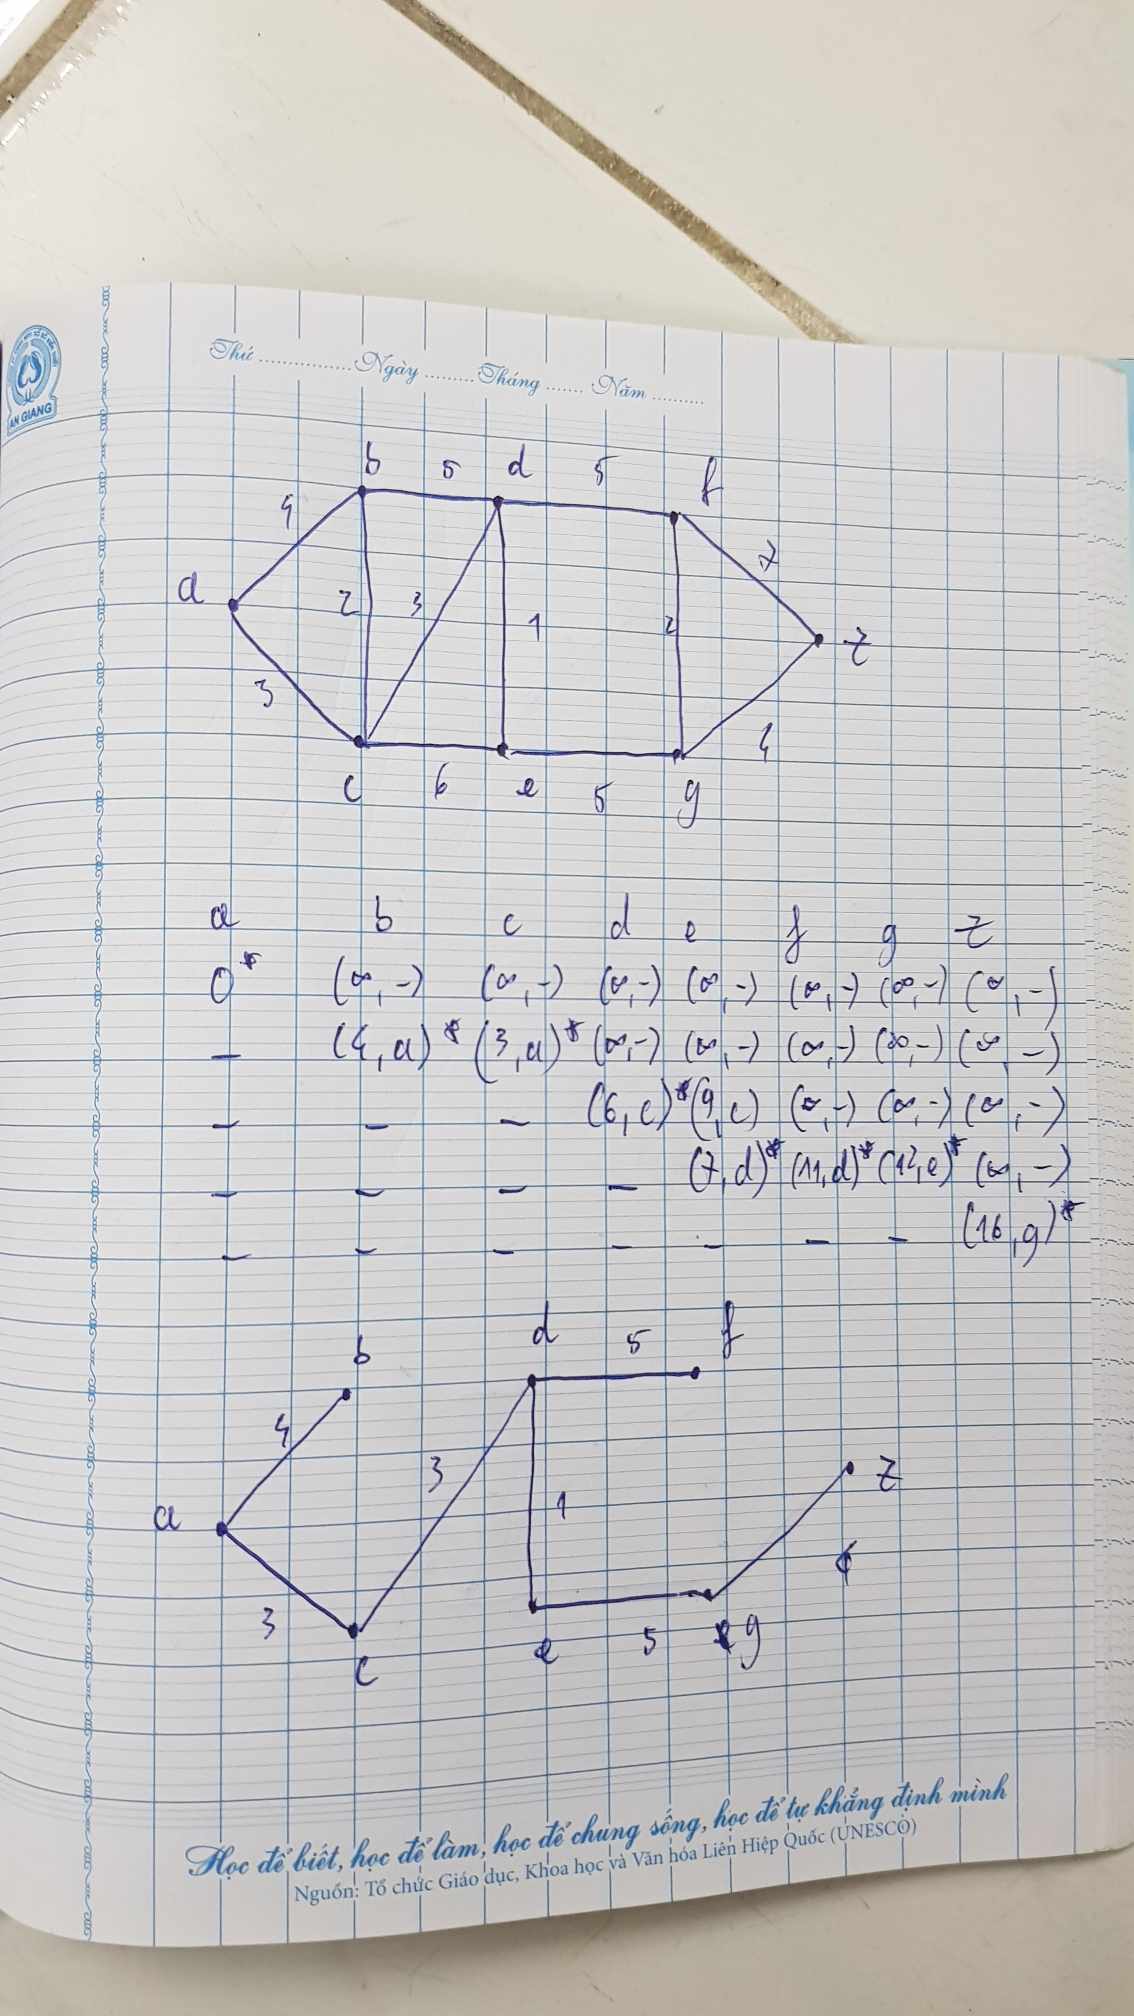 AN GIANG
Thứ ............... Ngày ......... Tháng ....... Năm ..........
b 5 d 5 f
4 7
a 2 3 1 2 z
3 4
c 6 e 5 g
a b c d e f g z
0* (∞,-) (∞,-) (∞,-) (∞,-) (∞,-) (∞,-) (∞,-)
- (4,a)* (3,a)* (∞,-) (∞,-) (∞,-) (∞,-) (∞,-)
- - - (6,c)* (9,c) (∞,-) (∞,-) (∞,-)
- - - - (7,d)* (11,d)* (12,e)* (∞,-)
- - - - - - - (16,g)*
b d 5 f
4 3 z
a 1
3 e 5 g
c
Học để biết, học để làm, học để chung sống, học để tự khẳng định mình
Nguồn: Tổ chức Giáo dục, Khoa học và Văn hóa Liên Hiệp Quốc (UNESCO)